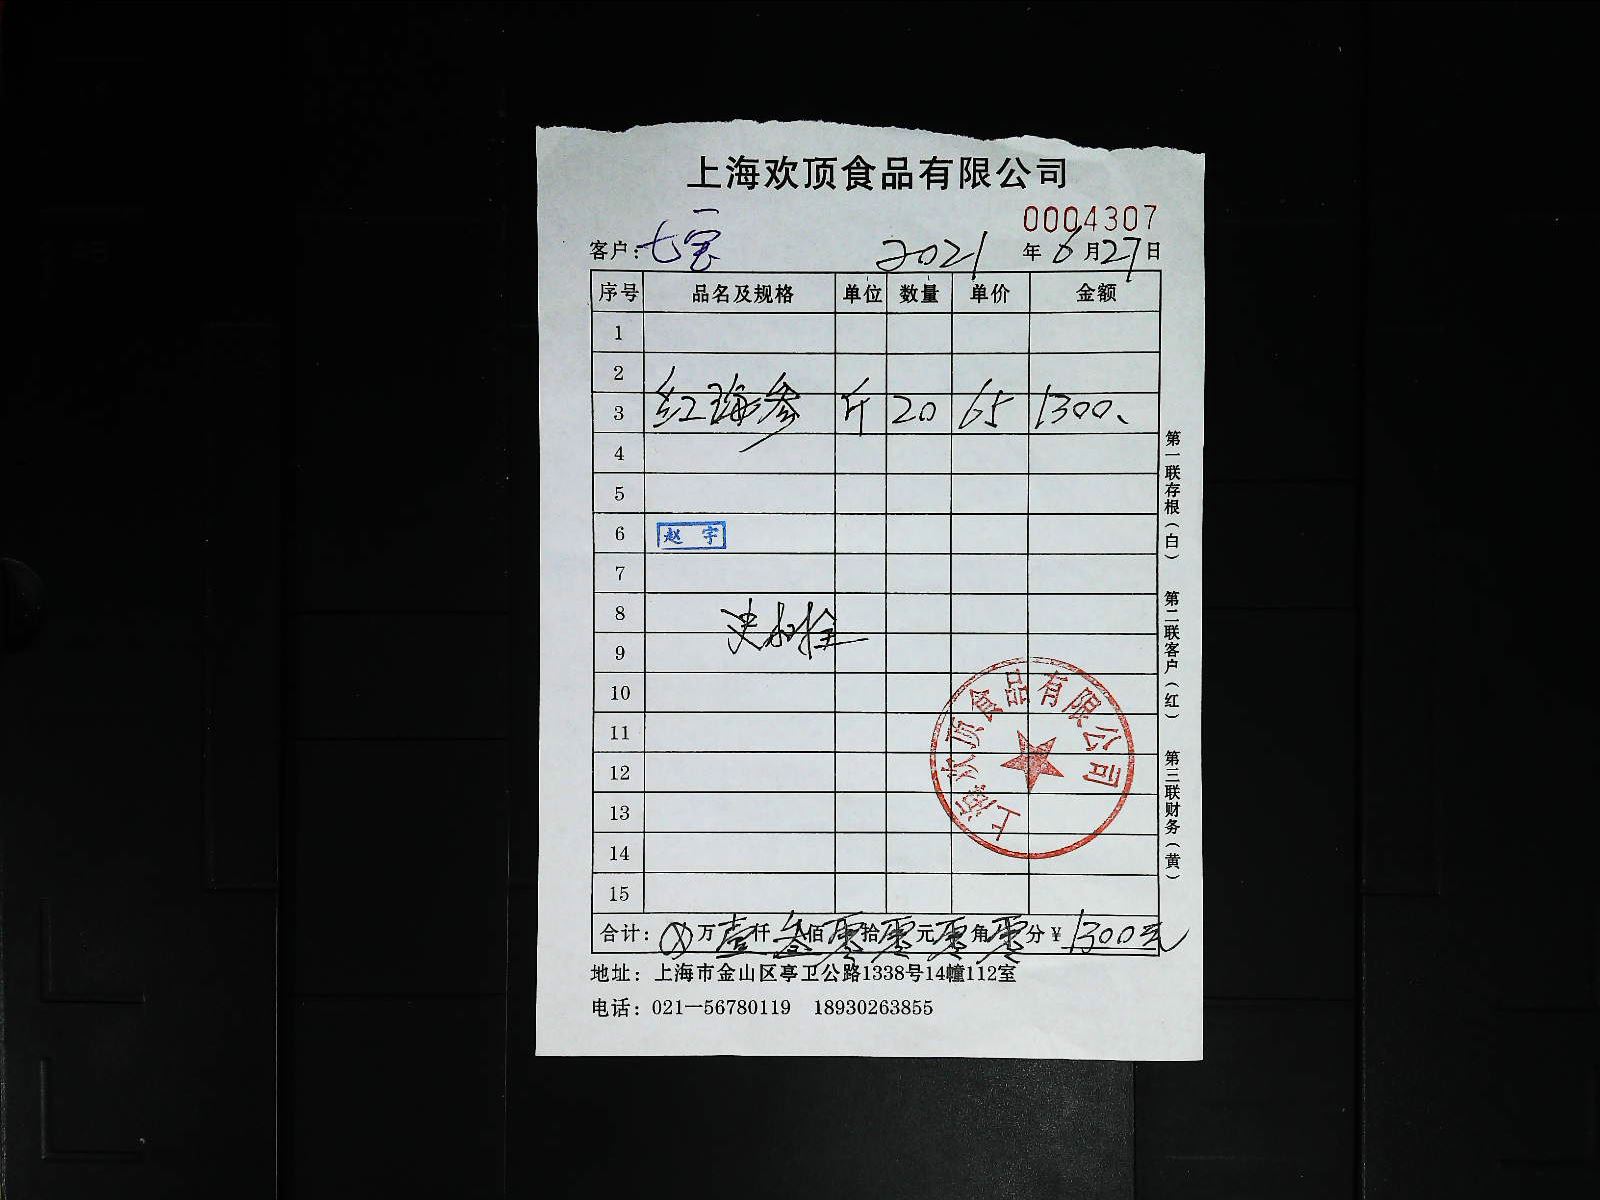 上海欢顶食品有限公司
0004307
客户：七宝 2021 年 6 月 27 日
序号 品名及规格 单位 数量 单价 金额
1
2
3 红海参 斤 20 65 1300、
4
5
6 赵 宇
7
8
9
10
11
12
13
14
15
上海欢顶食品有限公司
合计：⊗万壹仟叁佰零拾零元零角零分￥1300元
地址：上海市金山区亭卫公路1338号14幢112室
电话：021—56780119 18930263855
第一联存根（白） 第二联客户（红） 第三联财务（黄）